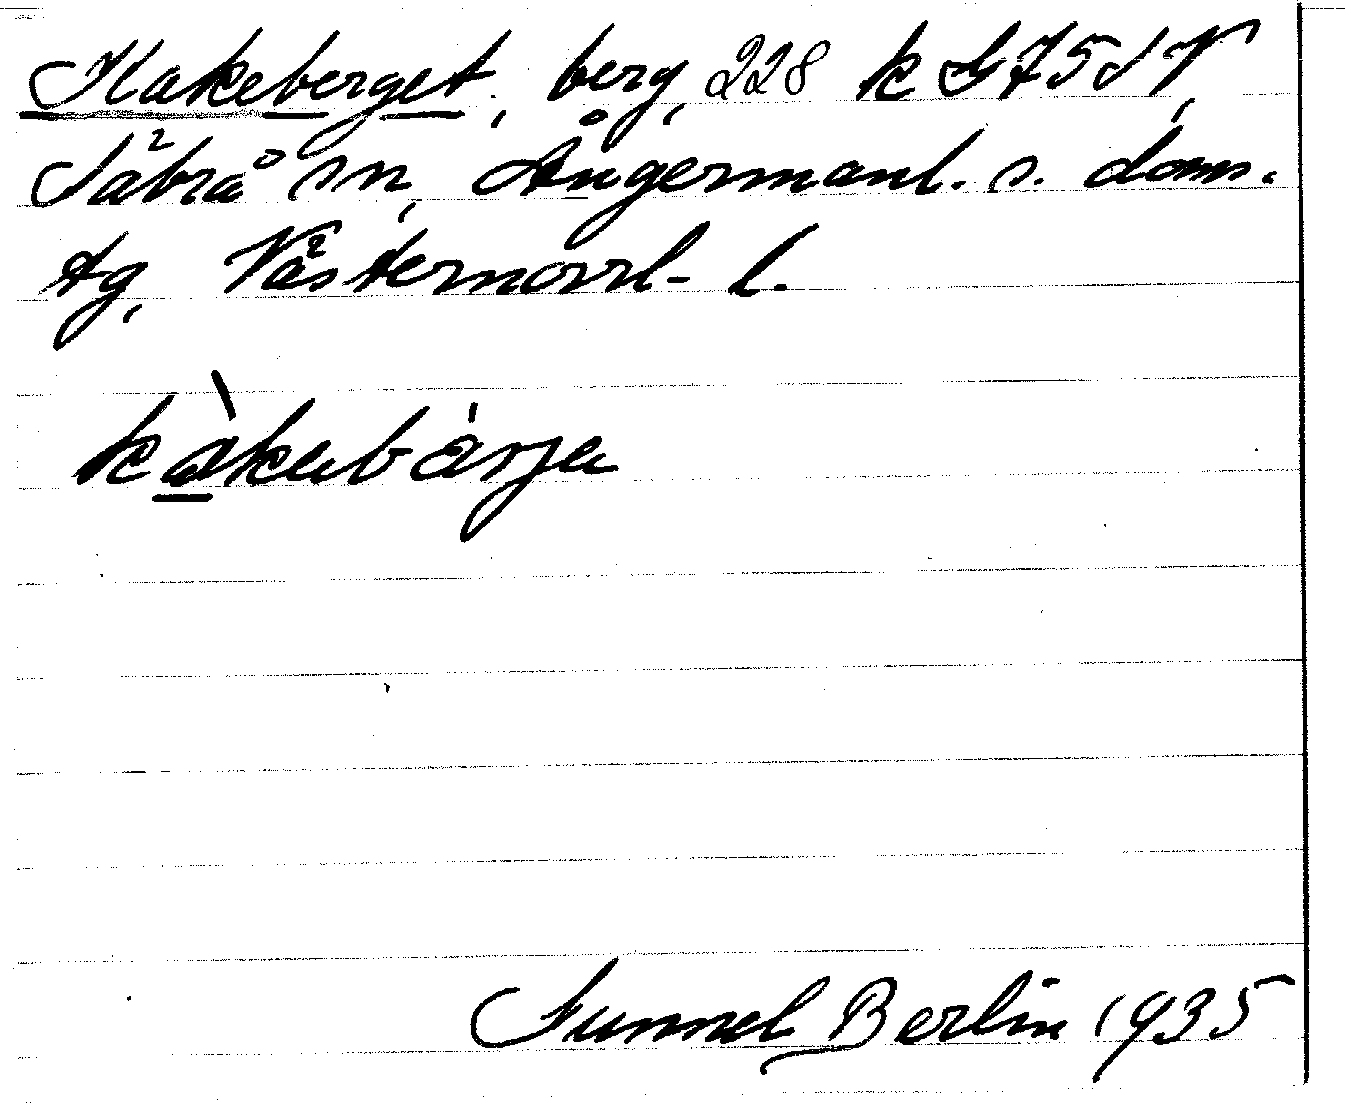 Kakeberget, berg, 228 k G75SV,
Säbrå sn, Ångermanl. s. doms.
tg, Västernorrl. l.
kàkabárja
Gunnel Berlin 1935